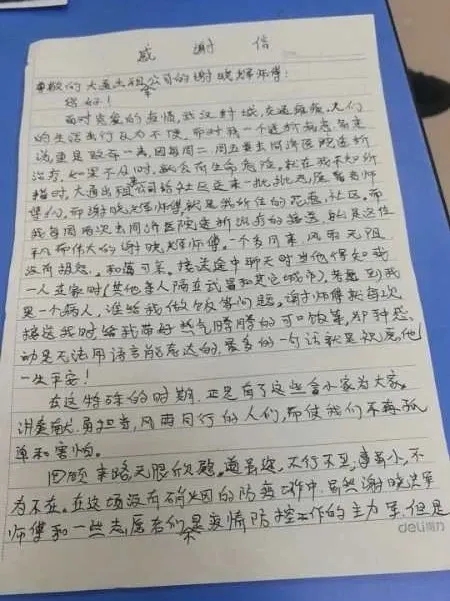 感谢信
尊敬的大通出租车公司的谢晓辉师傅:
您好!
面对突袭的疫情,武汉封城,交通瘫痪,人们
的生活出行极为不便。而对我一个透析病患者来
说更是致命一击,因每周二周五要去同济医院透析
治疗,如果不及时,就会有生命危险。就在我不知所
措时,大通出租车公司给社区送来一批批志愿者老师
傅们,而谢晓辉师傅就是我所住的花 社区。而
我每周两次去同济医院透析治疗的接送,就是这位
平凡而伟大的谢晓辉师傅。一个多月来,风雨无阻
没有 ,和蔼可亲。接送途中聊天时当他得知我
一人在家时(其他亲人隔在武昌和其它城市),考虑到我
是一个病人,谁给我做饭等问题。谢师傅就每次
接送我时给我带好热气腾腾的可口饭菜,那种感
动是无法用语言能表达的,最多的一句话就是祝愿他
一生平安!
在这特殊的时期,正是有了这些舍小家为大家。
讲奉献、勇担当,风雨同行的人们,而使我们不再孤
单和害怕。
回顾来路,无限欣慰。道虽迩,不行不至,事虽小,不
为不在。在这场没有硝烟的防疫工作中,虽然谢晓辉
师傅和一些志愿者们不是疫情防控工作的主力军,但是
deli得力